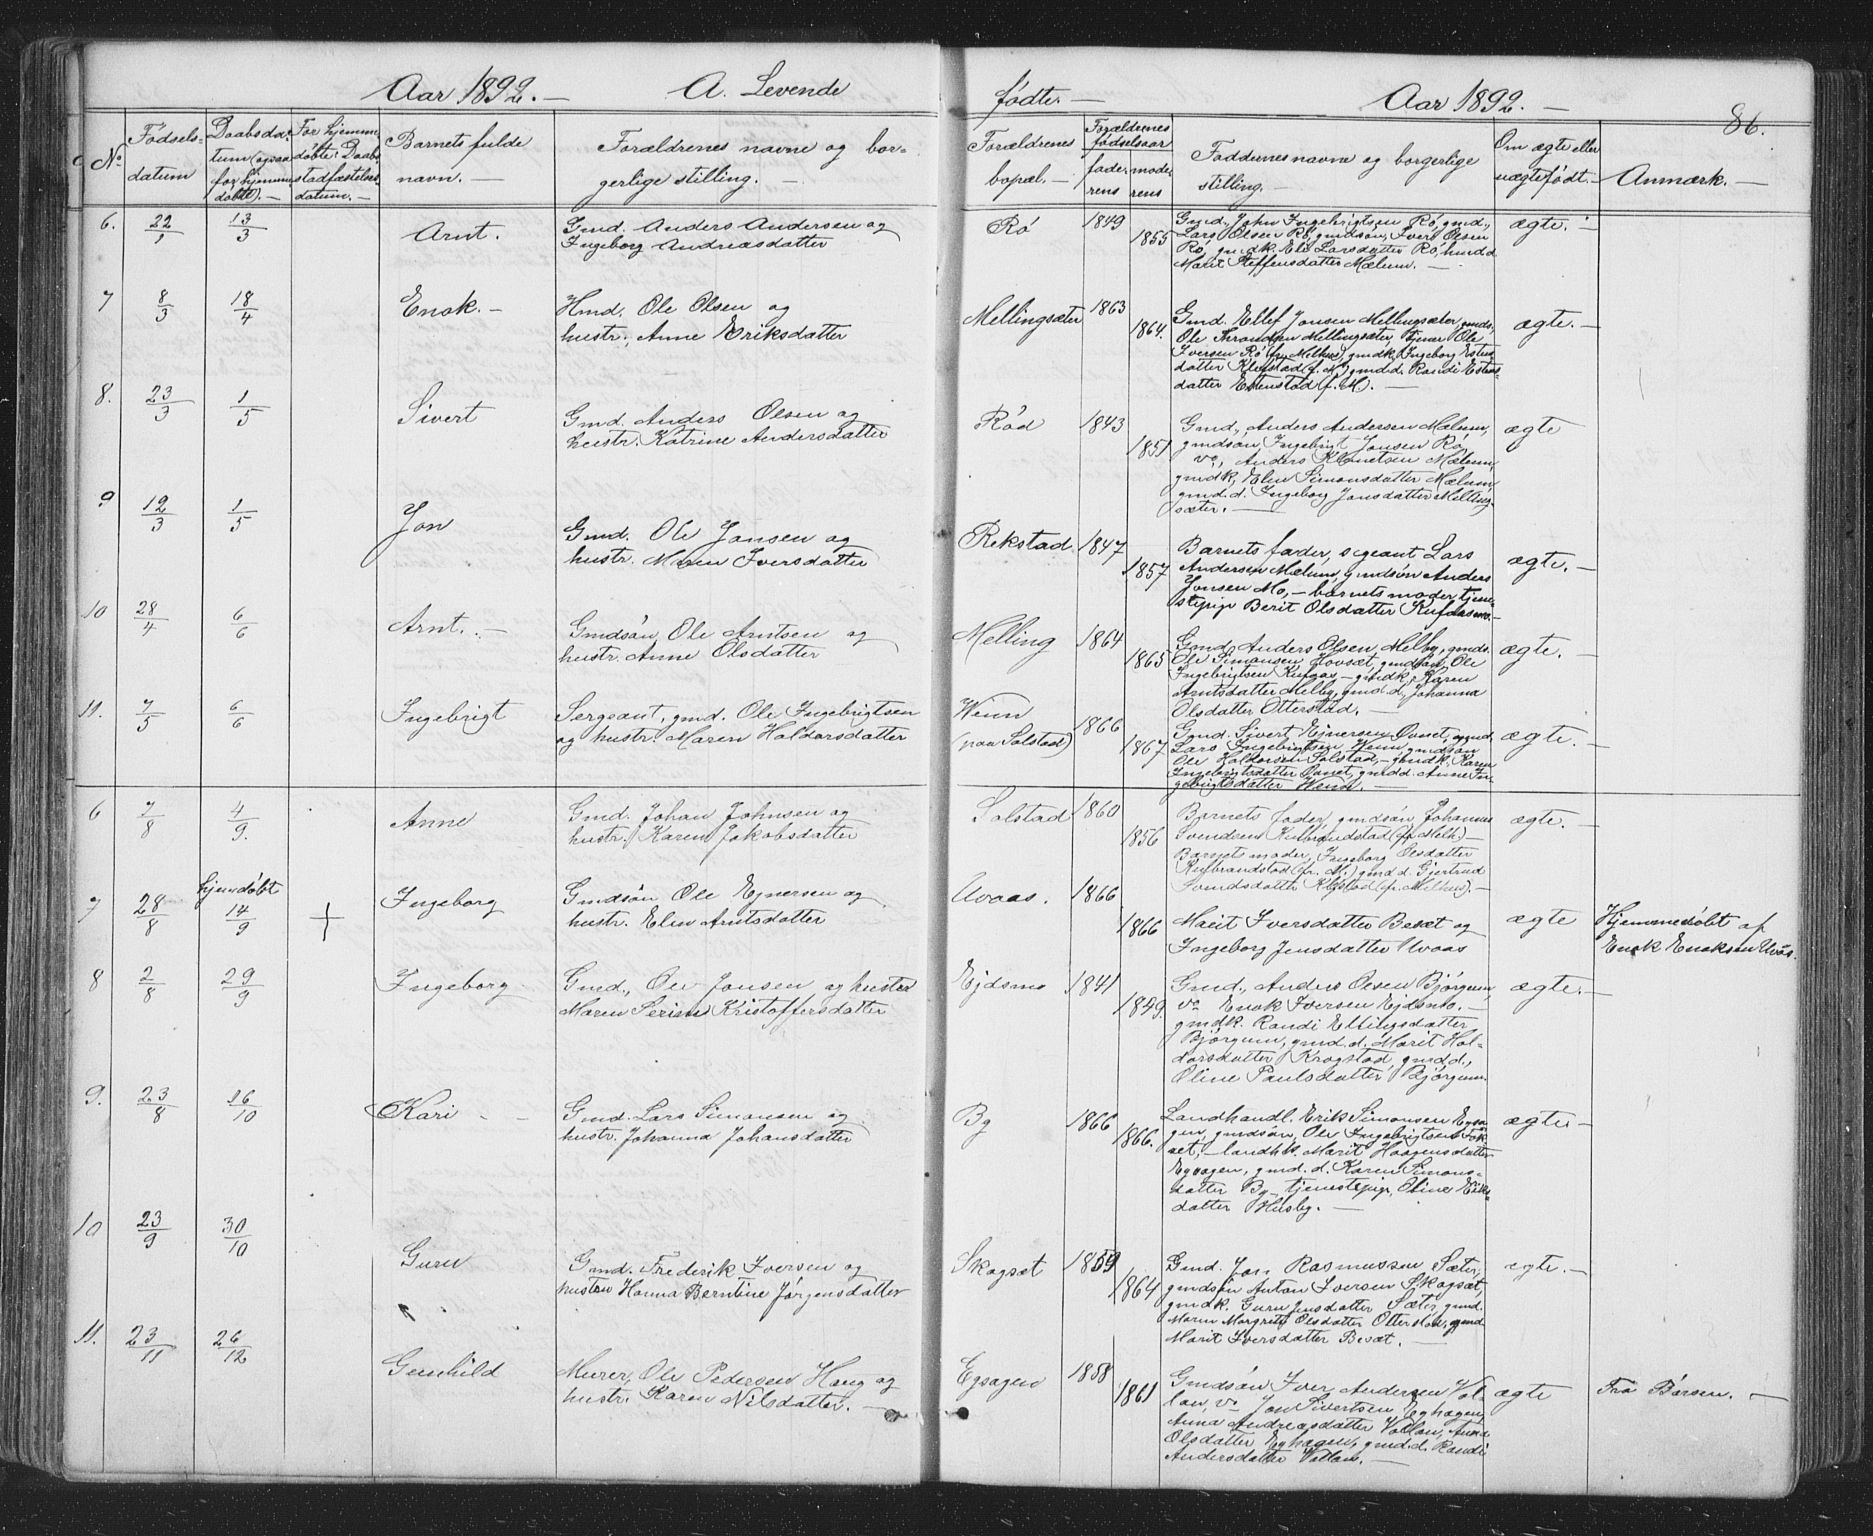 Aar 1892. —
A. Levende
fødte. —
Aar 1892. —
86.
No
Fødsels-
datum
Daabsda-
tum (ogsaa
for hjemme
døbte). —
For hjemme
døbte: Daabs
stadfæstelses
datum. —
Barnets fulde
navn. —
Forældrenes navne og bor-
gerlige stilling. —
Forældrenes
bopæl. —
Forældrenes
fødselsaar
fade-
rens
mode-
rens
Faddernes navne og borgerlige
stilling. —
Om ægte eller
uægte født. —
Anmærk. —
6. 22/1 13/3 Arnt.
Gmd. Anders Andersen og
Ingeborg Andreasdatter
Rø 1849 1855
Gmd. John Ingebrigtsen Rø, gmd.,
Lars Olsen Rø, gmdsøn, Ivert Olsen
Rø, gmdk. Eli Larsdatter Rø, husd.d
Marit Steffensdatter Mælum. —
ægte. —
7 8/3 18/4 Enok. —
Hmd. Ole Olsen og
hustr., Anne Eriksdatter
Mellingsæter 1863 1864.
Gmd. Ellef Jonsen Mellingsæter, gmds.
Ole Thronsen Mellingsæter, tjener Ole
Iversen Rø (fr. Melhus), gmdk. Ingeborg Estens
datter Kleistad (f. M) gmd.d. Randi Estens-
datter Estenstad (f. M). —
ægte. —
8. 23/3 1/5 Sivert
Gmd. Anders Olsen og
hustr. Katrine Andersdatter
Rød 1843 1851
Gmd., Anders Andersen Mælum,
gmdsøn Ingebrigt Jonsen Rø,
vo, Anders Klemetsen Mælum,
gmdk, Elen Simonsdatter Mælum,
gmd.d. Ingeborg Jonsdatter Melling
sæter. —
ægte
9 12/3 1/5 Jon
Gmd. Ole Jonsen og
hustr. Maren Iversdatter
Rekstad. 1847 1857
Barnets fader, sergeant Lars
Andersen Mælum, gmdsøn Anders
Jonsen Mo, — barnets moder, tjene-
stepige Berit Olsdatter
ægte. —
10 28/4 6/6 Arnt. —
Gmdsøn, Ole Arntsen og
hustr. Anne Olsdatter
Melling 1864 1865
Gmd. Anders Olsen Melby, gmds.
Ole Simonsen Hovsæt, gmdsøn Ole
Ingebrigtsen — gmdk. Karen
Arntsdatter Melby, gmd.d. Johanna
Olsdatter Otterstad. —
ægte. —
11. 7/5 6/6 Ingebrigt
Sergeant, gmd. Ole Ingebrigtsen
og hustr. Maren Haldorsdatter
Weiun
(paa Solstad) 1866 1867
Gmd. Sivert Ejnersen Ovnet, gmd.
Lars Ingebrigtsen Weiun, gmdsøn
Ole Haldorsen Solstad, — gmdk. Karen
Ingebrigtsdatter Ovnet, gmd.d. Anne In-
gebrigtsdatter Weiun. —
ægte. —
6 7/8 4/9. Anne
Gmd. Johan Johnsen og
hustr. Karen Jakobsdatter
Solstad 1860 1856
Barnets fader, gmdsøn Johannes
Svendsen Kulbrandstad (fr. Melh.) —
Barnets moder, Ingeborg Olsdatter
Kulbrandstad (fr. M.) gmd.d Gjertrud
Svendsdatter Klefstad (fr. Melhus). —
ægte. —
7 28/8 hjemdøbt 14/9 + Ingeborg
Gmdsøn Ole Ejnersen og
hustr. Elen Arntsdatter
Uvaas. 1866 1866
Marit Iversdatter Besæt og
Ingeborg Jensdatter Uvaas
ægte
Hjemmedøbt af
Enok Enoksen Uvås.
8 2/8 29/9 Ingeborg
Gmd., Ole Jonsen og hustru
Maren Serine Kristoffersdatter
Ejdsmo 1841 1849.
Gmd., Anders Olsen Bjørgum,
vo Enok Iversen Ejdsmo. —
gmdk. Randi Ellingsdatter
Bjørgum, gmd.d. Marit Hal-
dorsdatter Krogstad, gmd.d.,
Oline Paulsdatter, Bjørgum.
ægte. —
9. 23/8 16/10 Kari —
Gmd. Lars Simonsen og
hustr. Johanna Johansdatter
By 1866 1866.
Landhandl. Erik Simonsen Eysa-
gen, gmdsøn, Ole Ingebrigtsen Fok-
set, — landhk. Marit Haagensdatter
Eysagen, gmd.d. Karen Simons-
datter By, tjenestepige, Oline Eriks-
datter Husby. —
ægte —
10 23/9 30/10 Guru
Gmd. Frederik Iversen og
hustru Hanna Berntine Jørgensdatter
Skogsæt 1859 1864
Gmd. Jon Rasmussen Sæter,
gmdsøn Anton Iversen Skogsæt,
gmdk. Guru Jensdatter Sæter, gmd.
Maren Margrete Olsdatter Otterstad, gmd
Marit Iversdatter Besæt. —
ægte. —
11. 23/11 26/12 Gunhild
Murer, Ole Pedersen Haug og
hustr. Karen Nilsdatter. —
Eysagen 1858 1861
Gmdsøn Iver Andersen Val-
lan, vo Jon Sivertsen Eyhagen,
Anna Andreasdatter Vollan, Anna
Olsdatter Eyhagen, gmd.d. Randi
Andersdatter Vollan. —
ægte
Fra Børsen. —